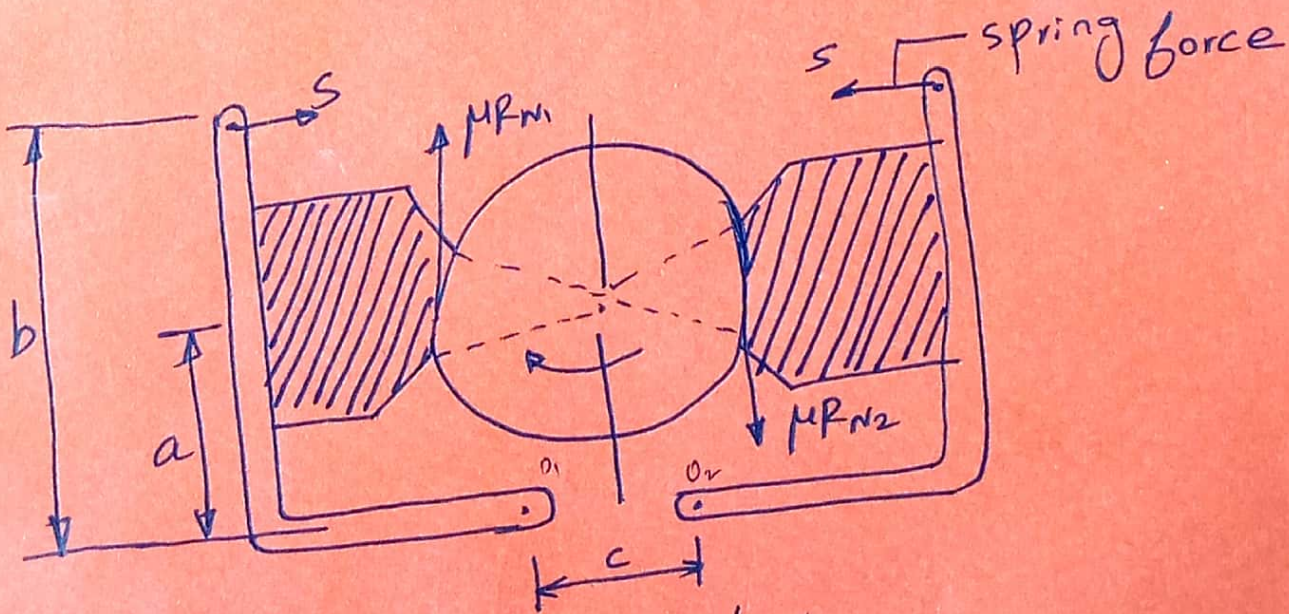 spring force
S
S
μRN1
b
a
μRN2
O1
O2
c